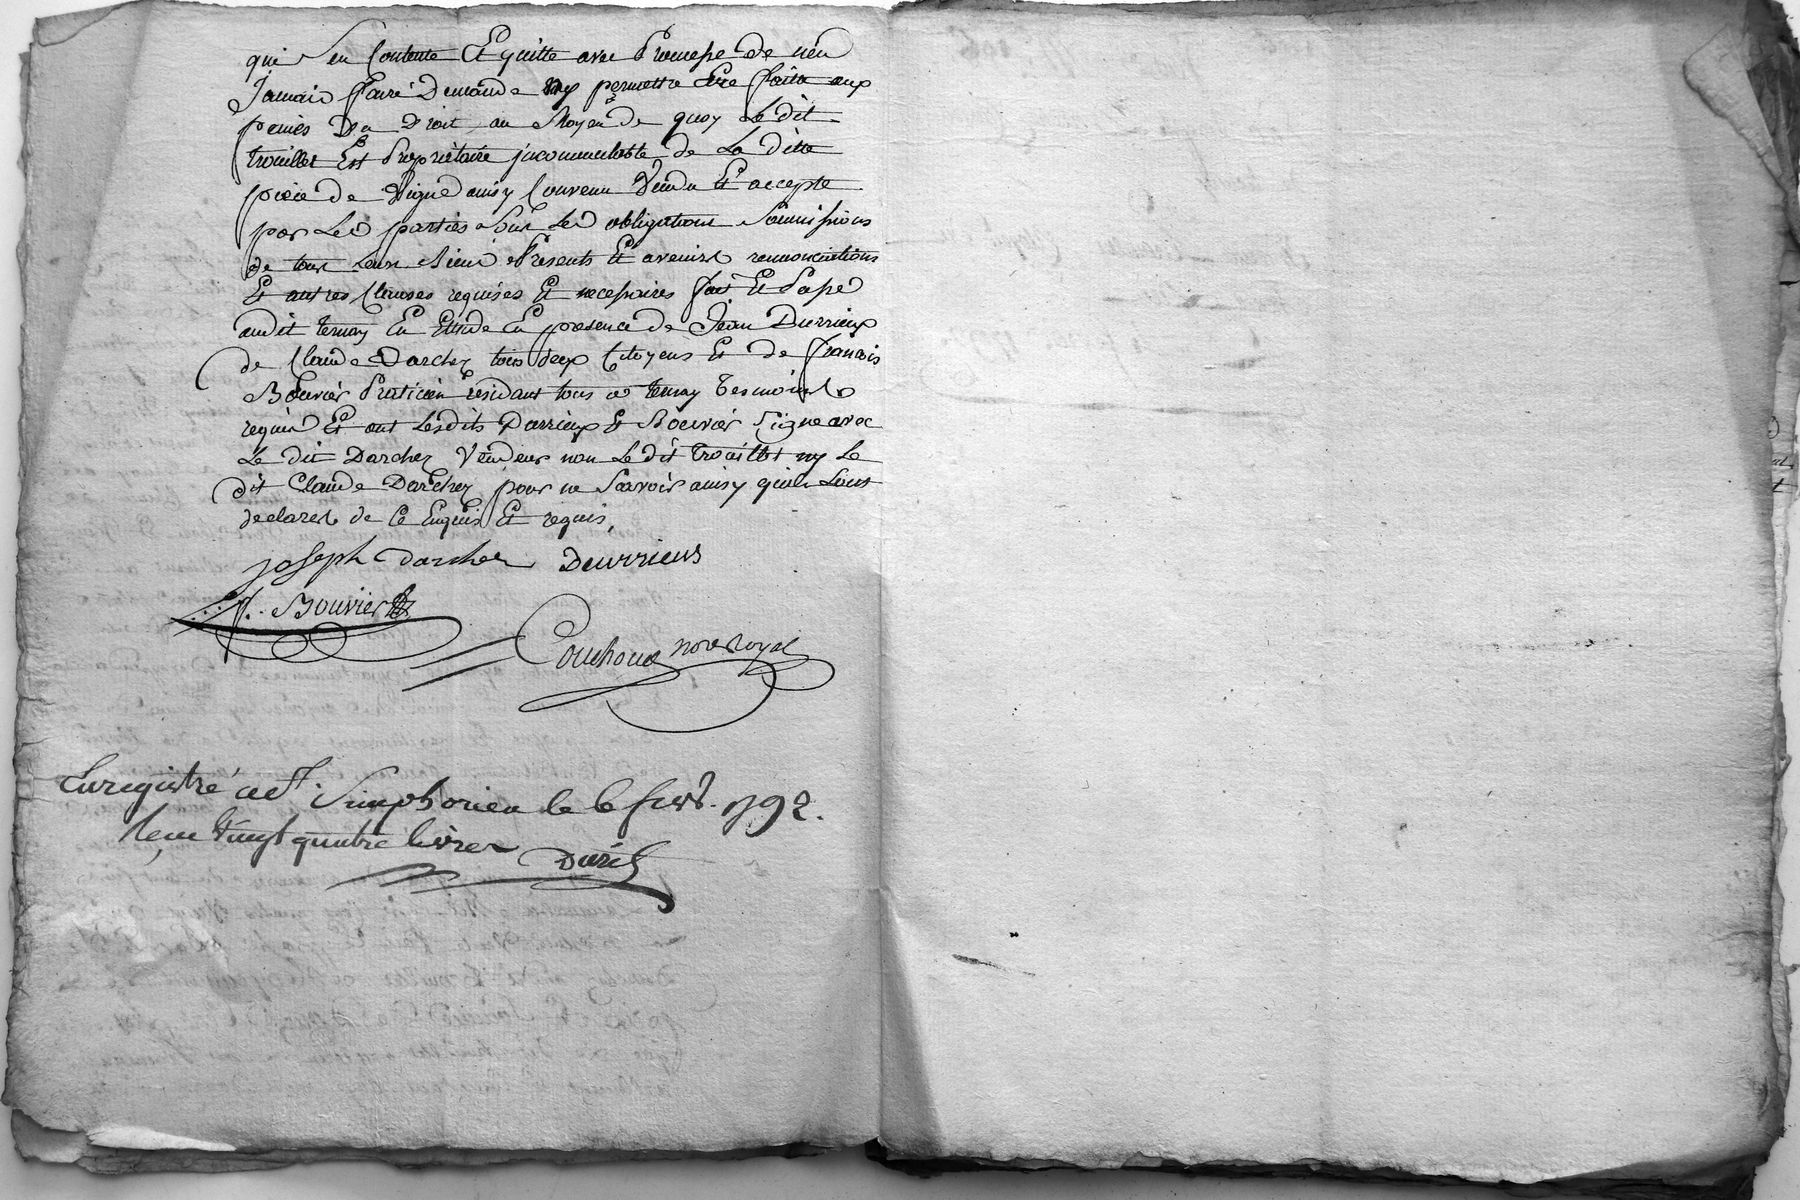 qui sen Contente Et quitte avec Promesse de nen
Jamais faire Demande ny permettre Etre faitte aux
peines Du Droit, au Moyen de quoy Le dit
trouillet Est Propriétaire jncommutable de La ditte
piéce de Vigne ainsy Convenu Vendu Et accepté
par Les parties Sous Les obligations Soumissions
de tous Leurs Biens Présents Et avenirs renonciations
Et autres Clauses requises Et necessaires fait Et Passé
audit ternay En Etude En présence de Jean Durrieux
de Claude Darchez tous deux Citoyens Et de francois
Bouvier Praticien résidants tous a ternay Tesmoins
requis Et ont Lesdits Durrieux Et Bouvier Signé avec
Le dit Darchez Vendeur non Le dit trouillet ny Le
dit Claude Darchez pour ne Scavoir ainsy quils Lont
declarés de Ce Enquis Et requis,
joseph darcher Deurrieus
f. Bouvier
Couchoud no.re Royal
Enregistré a St. Simphorien le 6 fevr. 1792.
Recu Vingt quatre livres